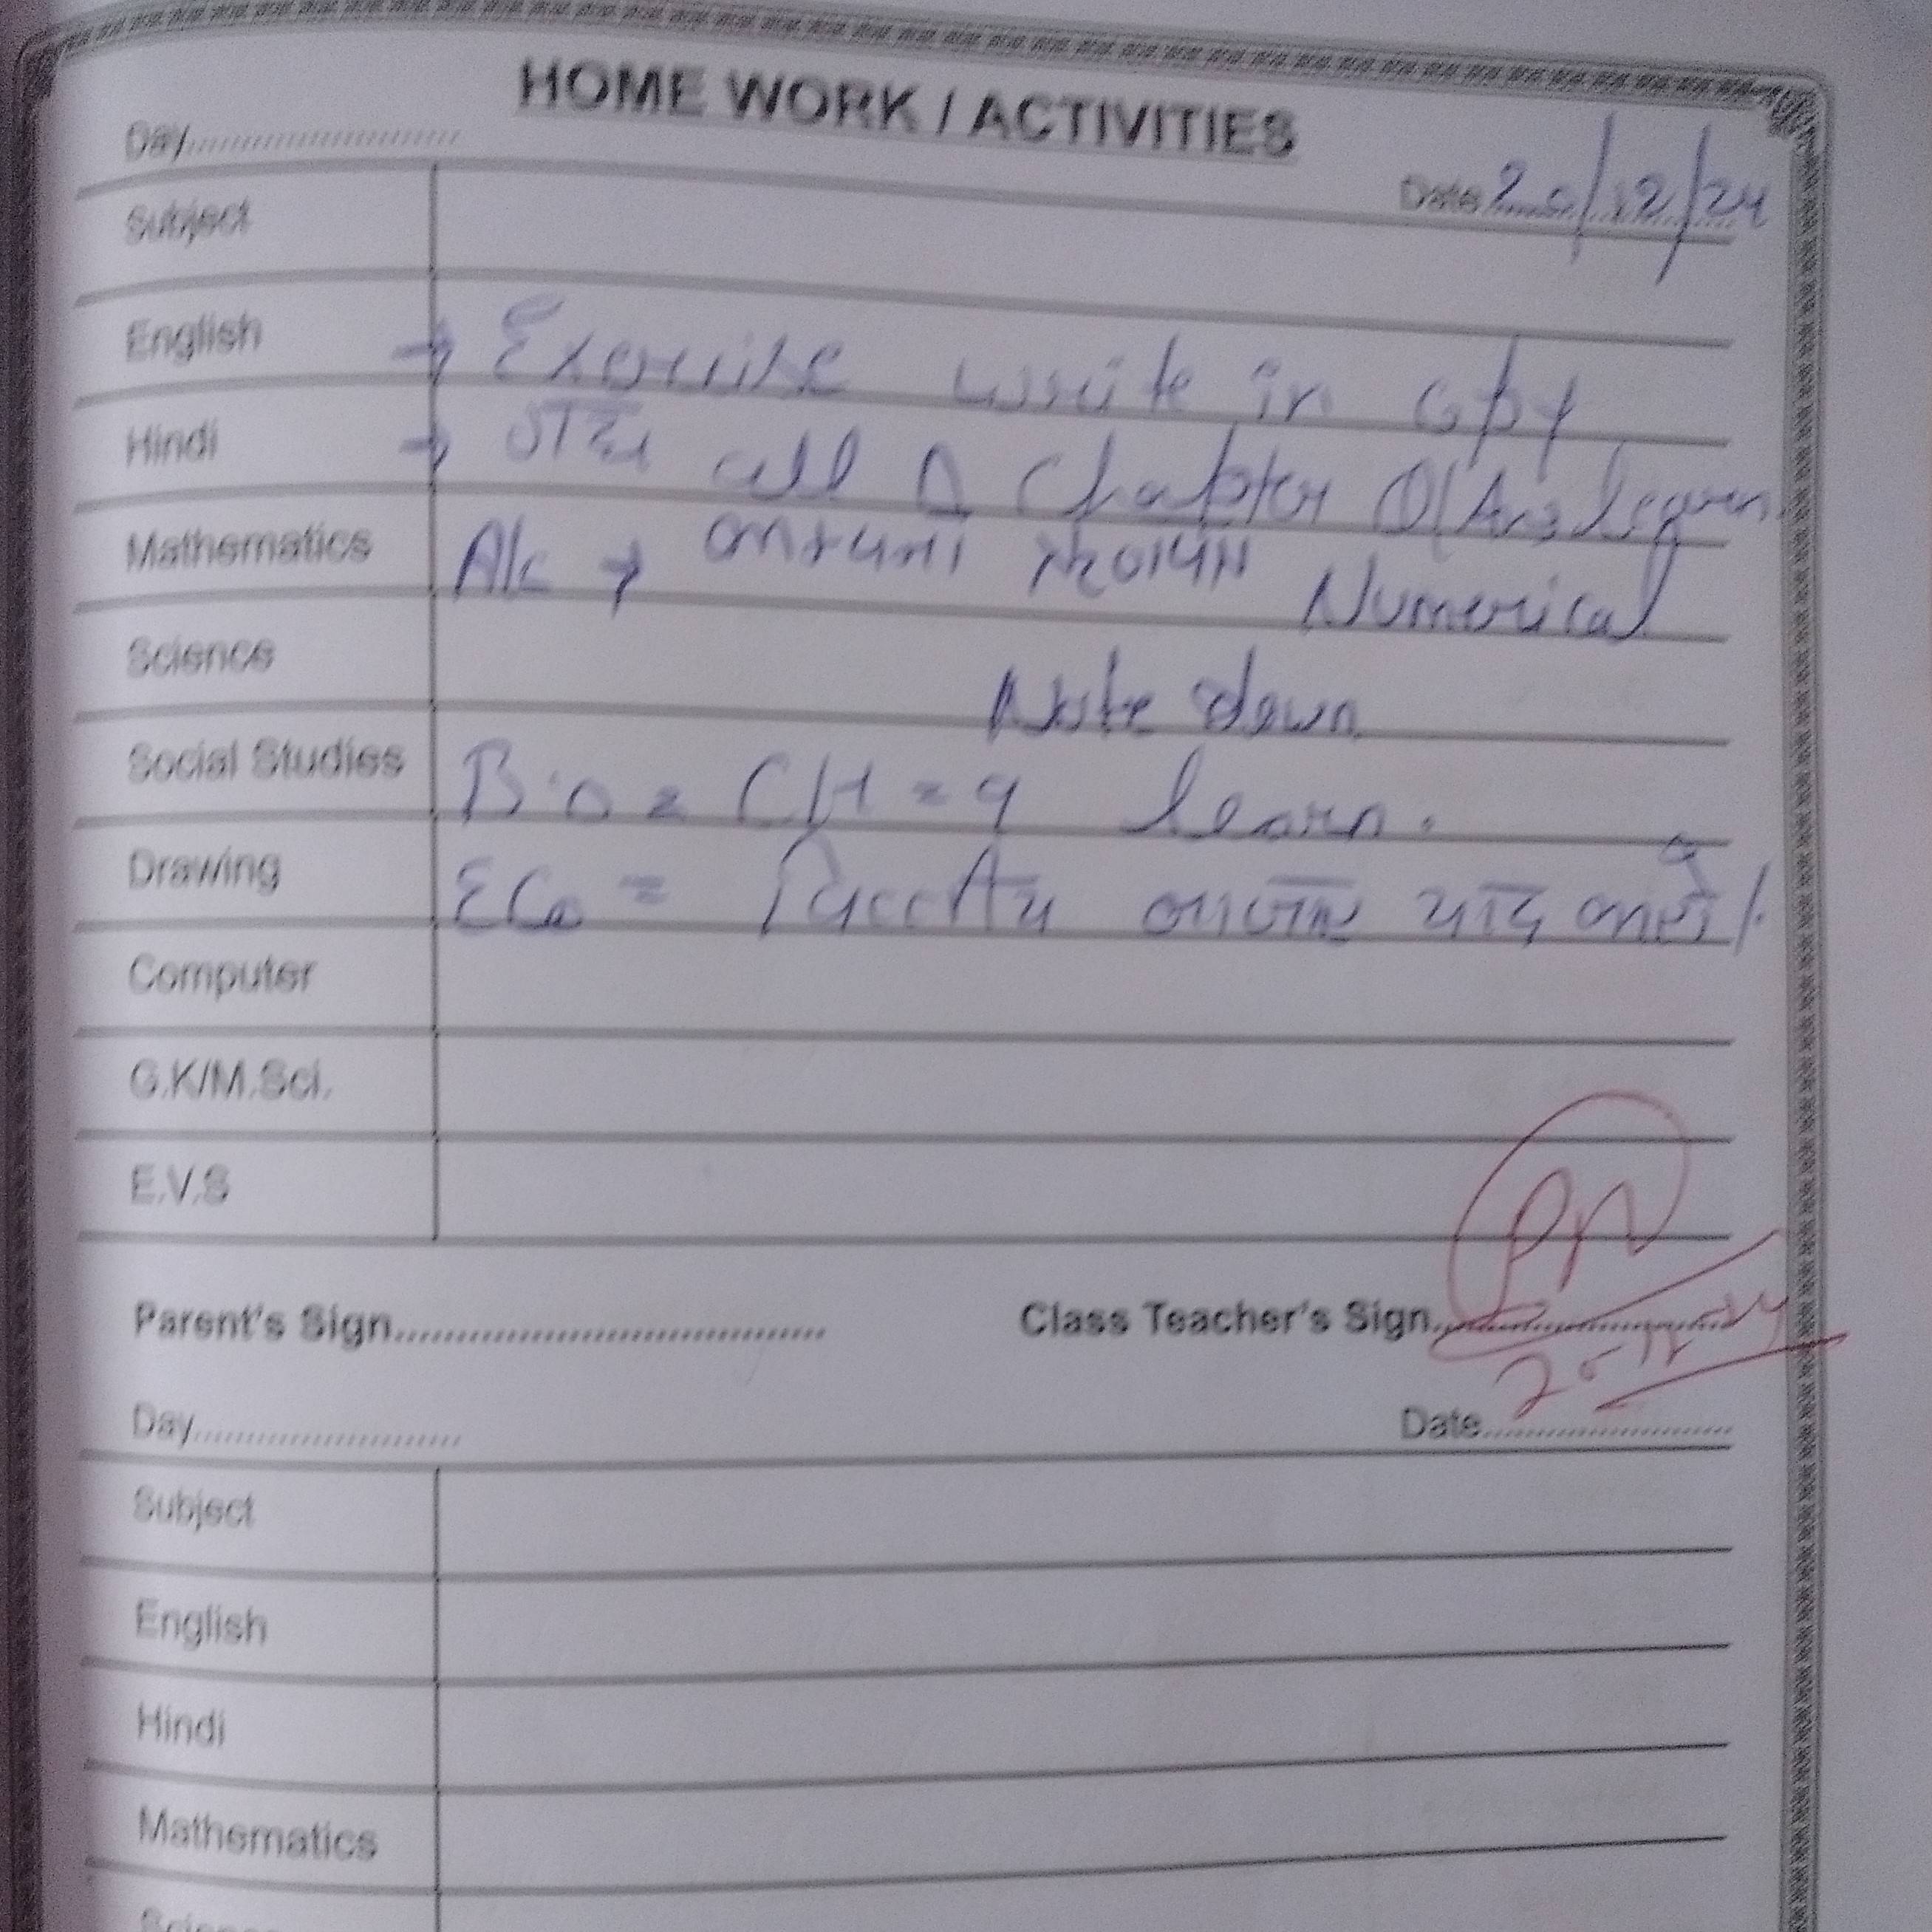 HOME WORK / ACTIVITIES
Day.......................... Date 20/12/24
Subject
English → Exercise write in copy
Hindi → all Chapter Q/Ans learn
Mathematics A/c → Numerical
Science Note down
Social Studies Bio = CH = 9 learn.
Drawing ECo =
Computer
G.K/M.Sci.
E.V.S
Parent's Sign.......................................... Class Teacher's Sign..............................
20-12-24
Day.......................... Date.........................
Subject
English
Hindi
Mathematics
Science